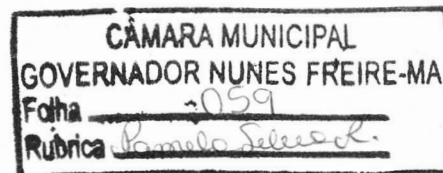 CÂMARA MUNICIPAL
GOVERNADOR NUNES FREIRE-MA
Folha 059
Rubrica Pamela